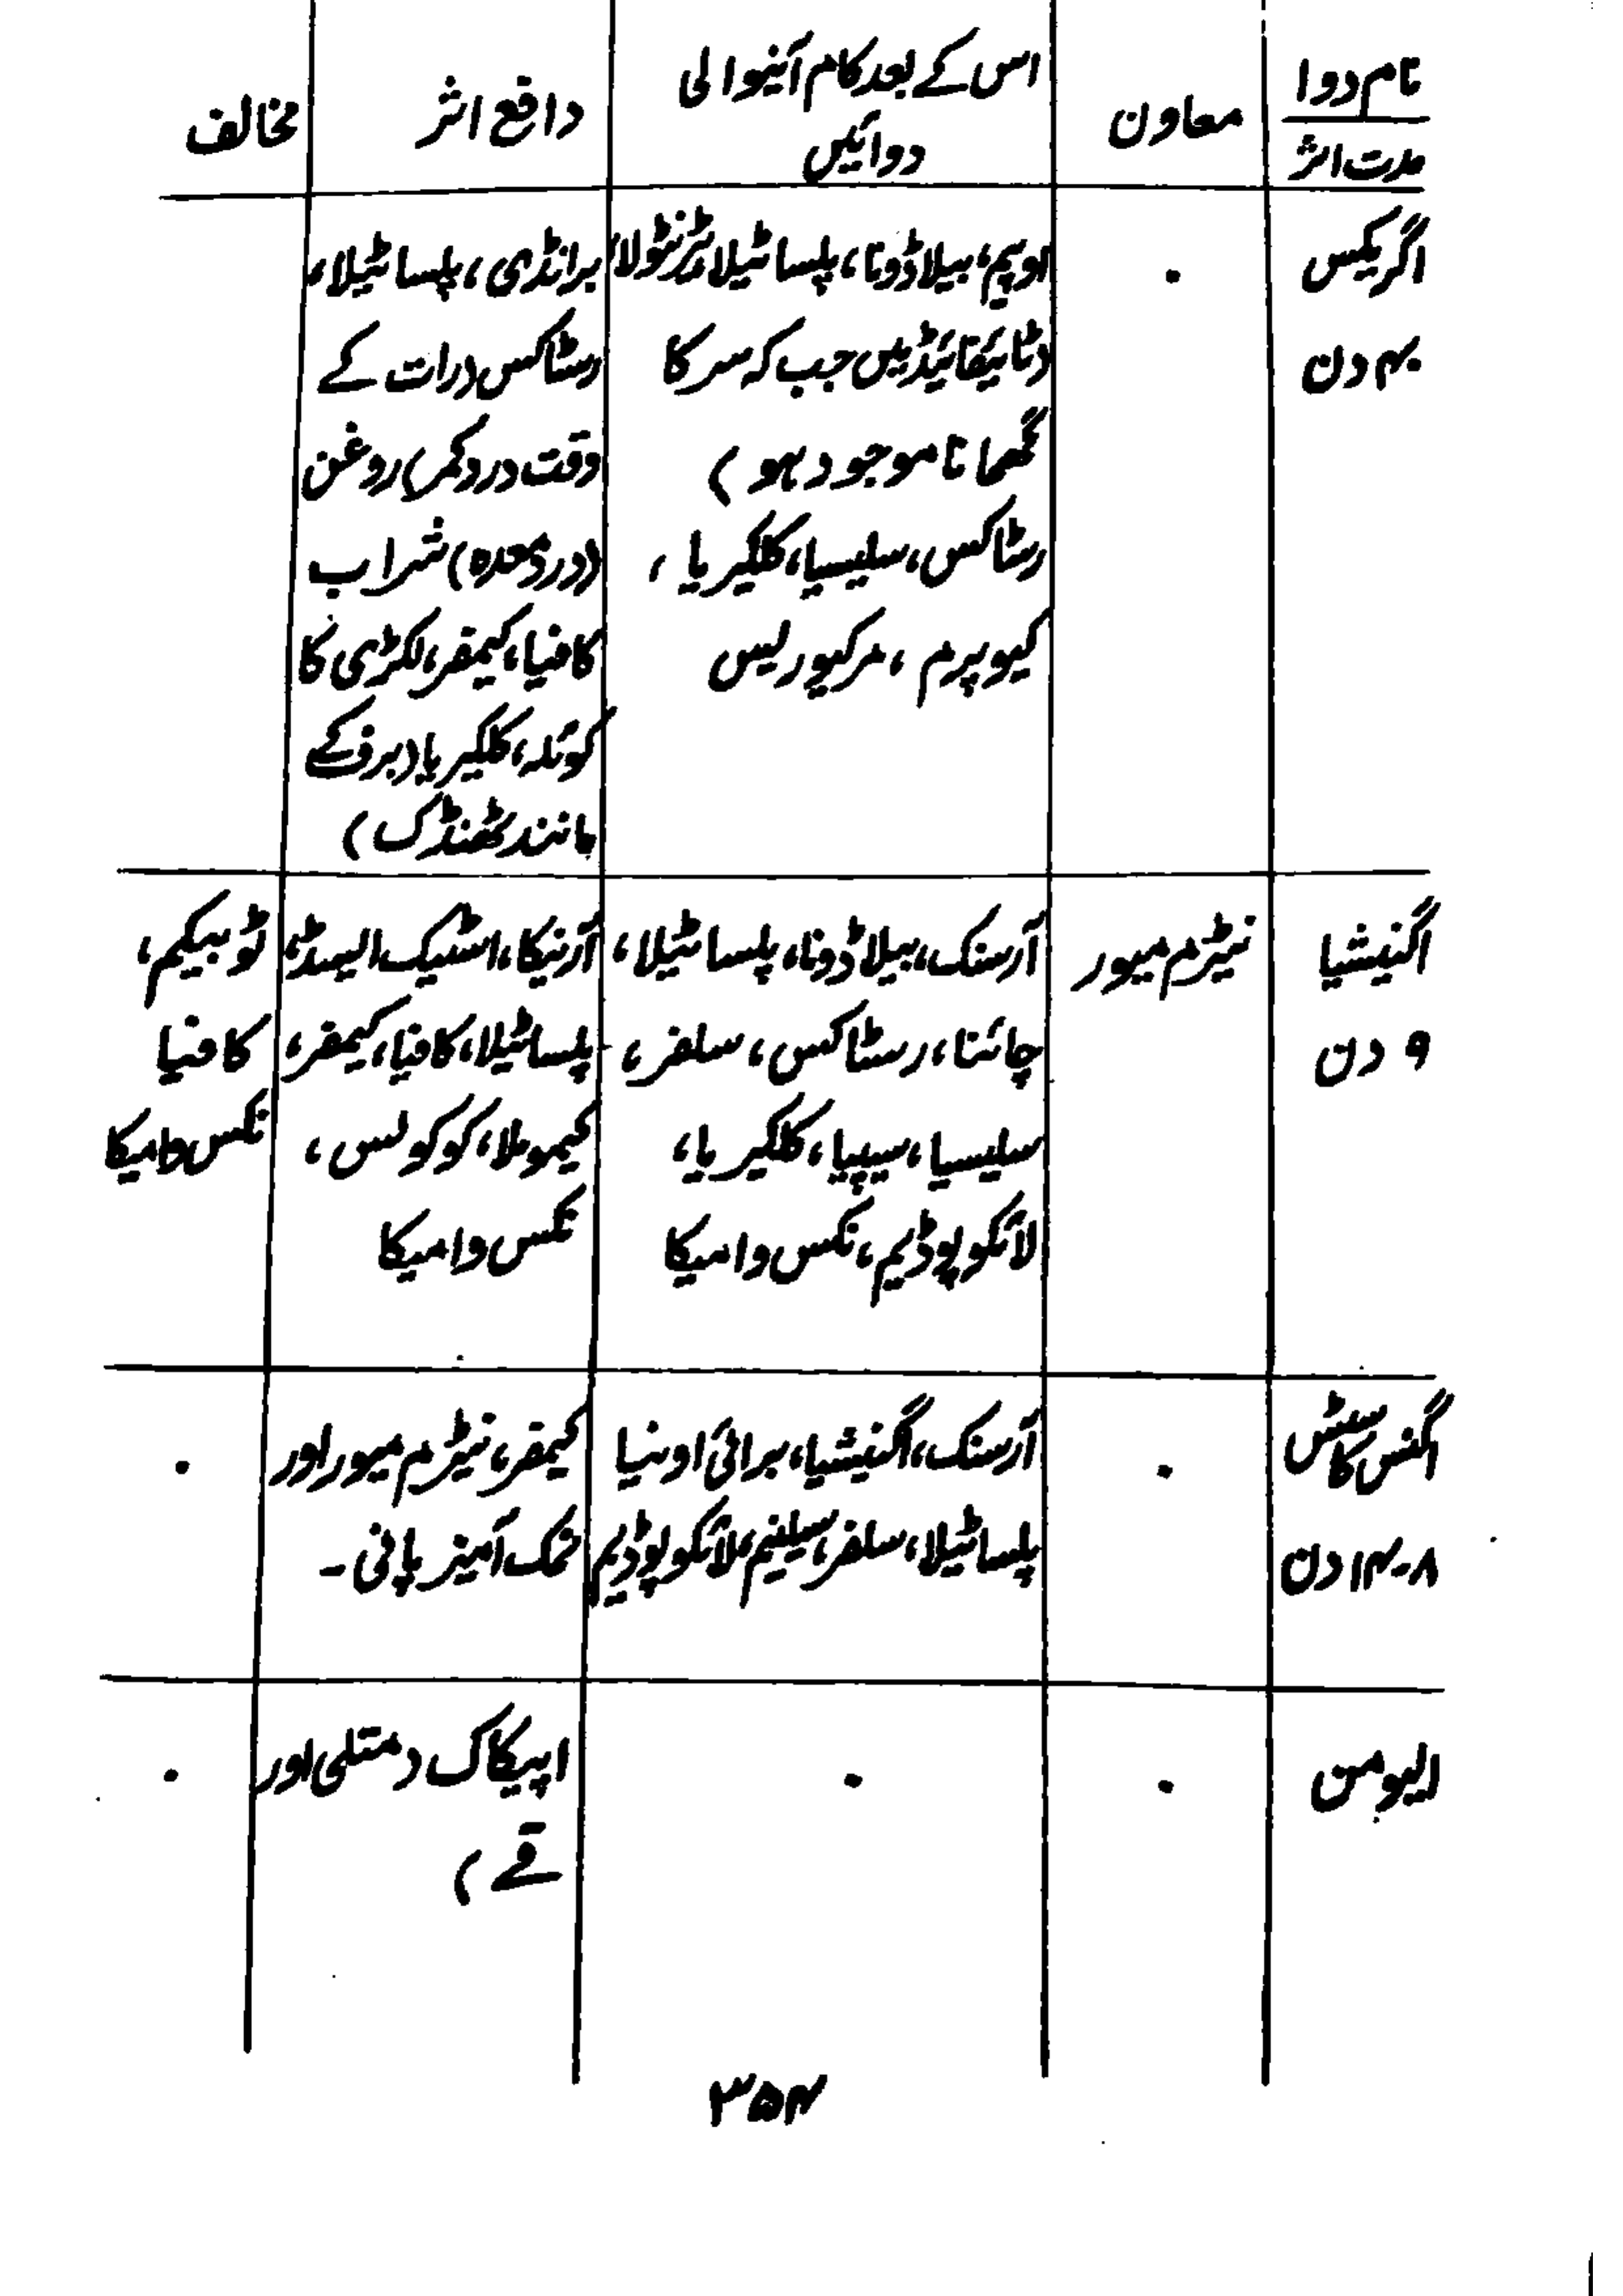 نام دوا
مدت اثر
معاون
اس کے بعد کام آنیوالی
دوائیں
دافع اثر
مخالف
اگریکس
۴۰ دن
۰
اوپیم، بیلاڈونا، پلساٹیلا، ٹرنٹولا
(ٹائیفائیڈ میں جب کہ سر کا
گھمانا موجود ہو)
رسٹاکس، سلیسیا، کلکیریا،
کیوپرم، مرکیورلیس
برانڈی، پلساٹیلا،
رسٹاکس (رات کے
وقت درد کمر) روغن
(درد معدہ) شراب
کافیا، کیمفر، لکڑی کا
کوئلہ، کلکیریا (برف کے
مانند ٹھنڈک)
اگنیشیا
۹ دن
نیٹرم میور
آرسنک، بیلاڈونا، پلساٹیلا،
چائنا، رسٹاکس، سلفر،
سلیسیا، سیپیا، کلکیریا،
لائکوپوڈیم، نکس وامیکا
آرنیکا، اسٹیک ایسڈ،
پلساٹیلا، کافیا، کیمفر،
کیموملا، کوکولس،
نکس وامیکا
ٹوبیکم،
کافیا
نکس وامیکا
اگنس کاسٹس
۸-۱۴ دن
۰
آرسنک، اگنیشیا، برائی اونیا
پلساٹیلا، سلفر، سیلنیم، لائکوپوڈیم
کیمفر، نیٹرم میور اور
نمک آمیز پانی۔
۰
ایومن
۰
۰
اپیکاک (متلی اور
قے)
۰
۳۵۴